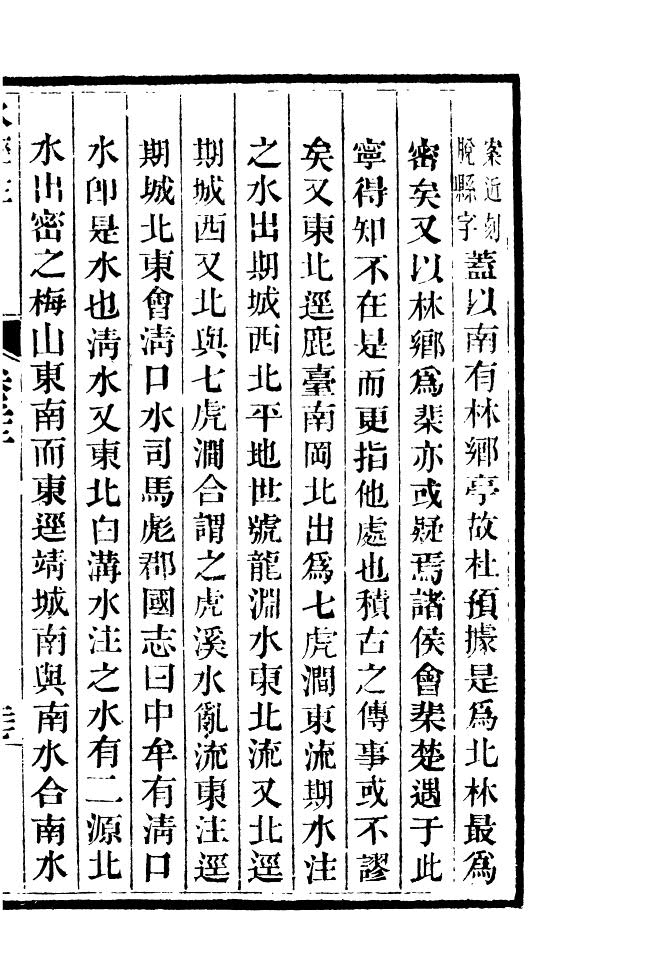 案近刻脫縣字蓋以南有林鄉亭故杜預據是爲北林最爲
密矣又以林鄉爲棐亦或疑焉諸侯會棐楚遇于此
寧得知不在是而更指他處也積古之傳事或不謬
矣又東北逕鹿臺南岡北出爲七虎澗東流期水注
之水出期城西北平地世號龍淵水東北流又北逕
期城西又北與七虎澗合謂之虎溪水亂流東注逕
期城北東會清口水司馬彪郡國志曰中牟有清口
水卽是水也清水又東北白溝水注之水有二源北
水出密之梅山東南而東逕靖城南與南水合南水